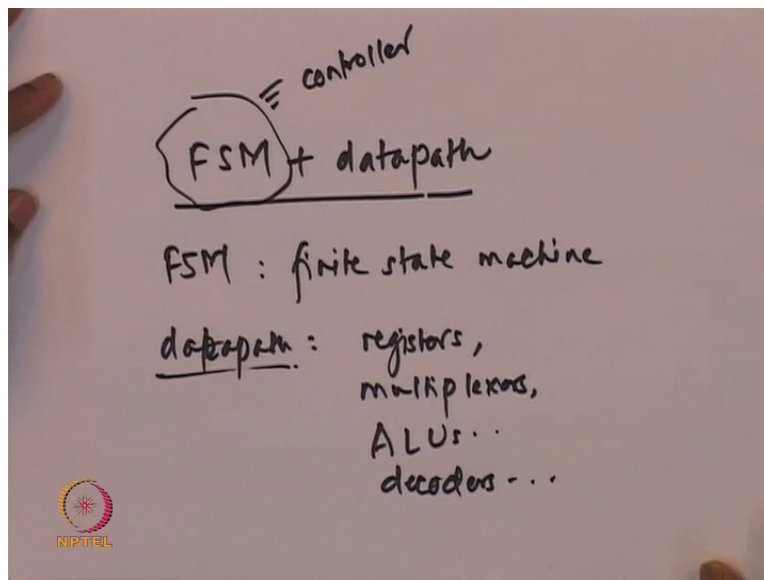 controller
FSM + datapath
FSM : finite state machine
datapath : registors,
multiplexors,
ALUs..
decoders...
NPTEL